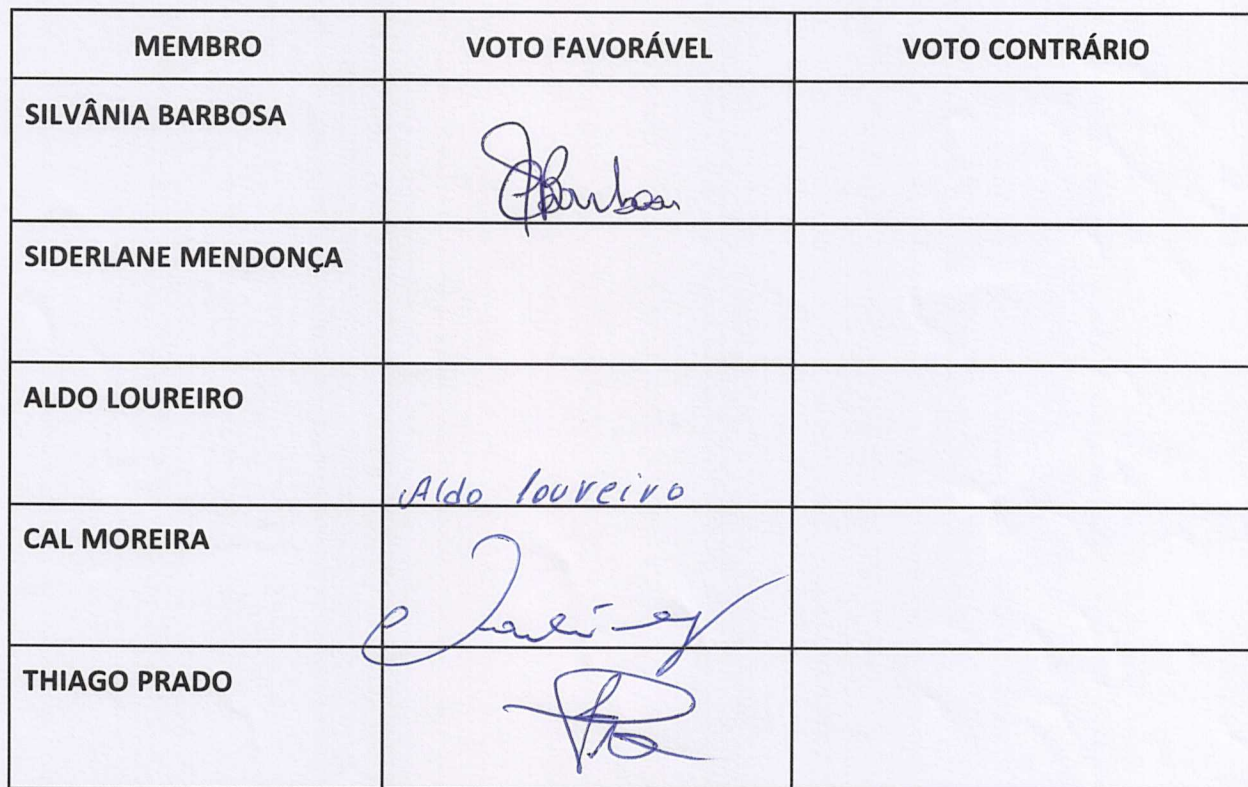 MEMBRO VOTO FAVORÁVEL VOTO CONTRÁRIO
SILVÂNIA BARBOSA
SIDERLANE MENDONÇA
ALDO LOUREIRO
Aldo loureiro
CAL MOREIRA
THIAGO PRADO